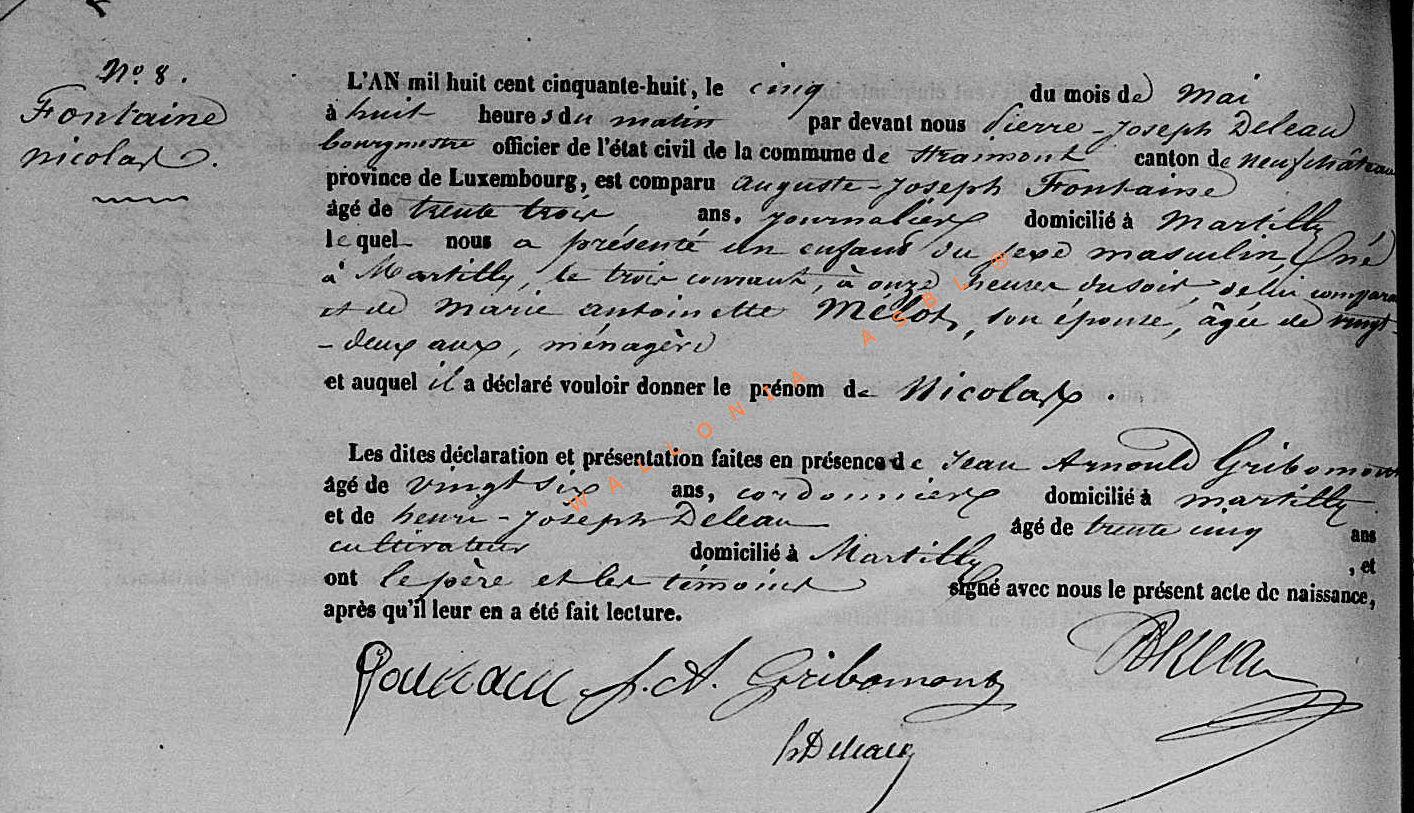 No. 8.
Fontaine
Nicolas.
L'AN mil huit cent cinquante-huit, le cinq du mois de Mai
à huit heures du matin par devant nous Pierre-Joseph Deleau
bourgmestre officier de l'état civil de la commune de Straimont canton de neufchâteau
province de Luxembourg, est comparu Auguste-Joseph Fontaine
âgé de trente trois ans, journalier domicilié à Martilly
lequel nous a présenté un enfant du sexe masculin, né
à Martilly, le trois courant, à onze heures du soir, de lui comparant
et de Marie Antoinette Mélot, son épouse, âgée de vingt-
-deux ans, ménagère
et auquel il a déclaré vouloir donner le prénom de Nicolas.
Les dites déclaration et présentation faites en présence de Jean Arnould Gribomont
âgé de vingt six ans, cordonnier domicilié à martilly
et de henri-Joseph Deleau âgé de trente cinq ans
cultivateur domicilié à Martilly, et
ont le père et les témoins signé avec nous le présent acte de naissance,
après qu'il leur en a été fait lecture.
J. A. Gribomont
WALLONIA ASBL